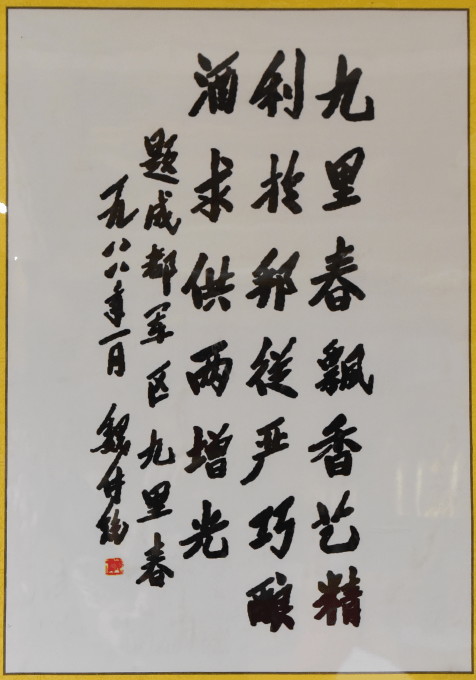 九里春飘香艺精
利於邦從严巧酿
酒求供两增光
题成都军区九里春
一九八八年一月 魏传统